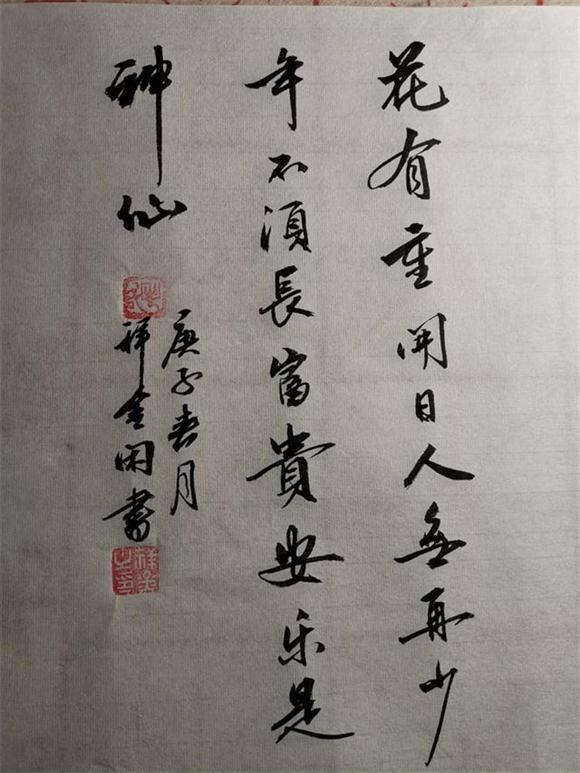 花有重開日人無再少
年不須長富貴安乐是
神仙
庚子春月
祥金閑書